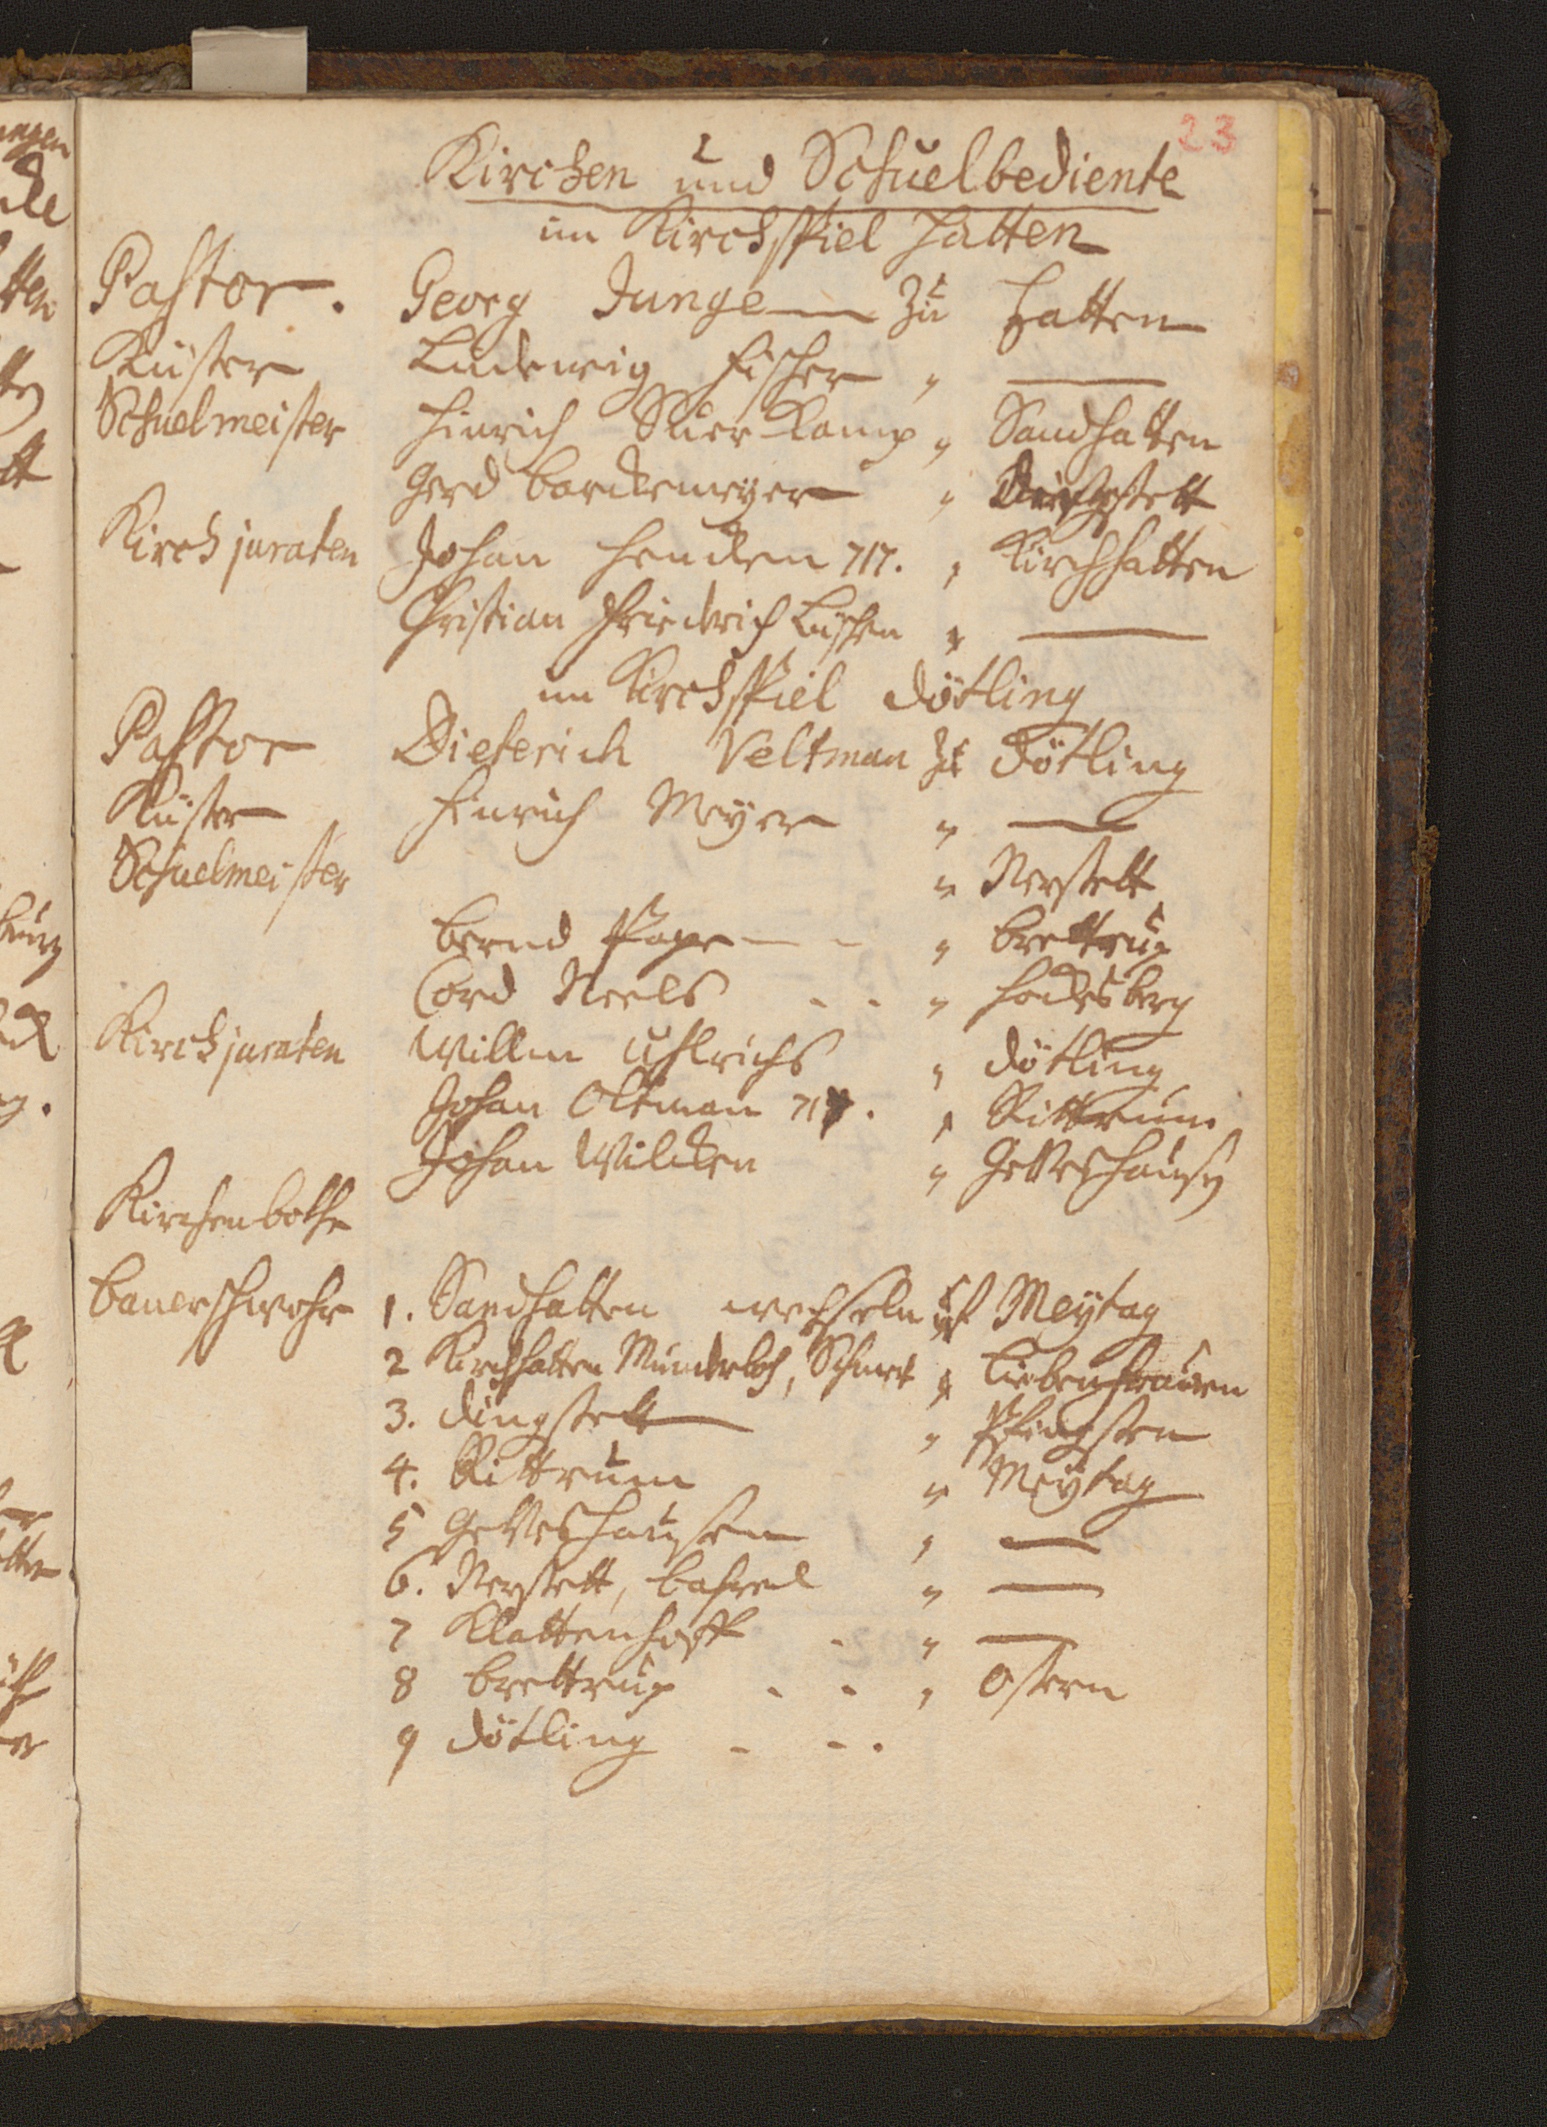 23
Kirchen und Schuelbediente
im Kirchspiel Hatten
Pastor. Georg Junge zu Hatten
Küster Ludewig Fischer " —
Schuelmeister Hinrich Suer Kamp " Sandhatten
Gerd Bardemeyer " Dingstett
Kirchjuraten Johan Hencken 717. " Kirchhatten
Christian Friedrich " —
im Kirchspiel Dötling
Pastor Dieterich Veltman zu Dötling
Küster Hinrich Meyer " —
Schuelmeister " Nerstett
Bernd Pape — - " Brettrup
Cord Neels - - " Hockesberg
Kirchjuraten Willm Uhlrichs " Dötling
Johan Oltman 717. " Rittrum
Johan Wilcken " Geveshausen
Kirchenbothe
Bauerschwohr 1. Sandhatten wechseln uf Meytag
2 Kirchhatten Munderloh, Schmee " Liebenfrauen
3. Dingstett — " Pfingsten
4. Rittrum " Meytag
5 Geveshausen " —
6. Nerstett, Bahrel " —
7 Klattenhoff - " —
8 Brettrup - - " Ostern
9 Dötling - - .